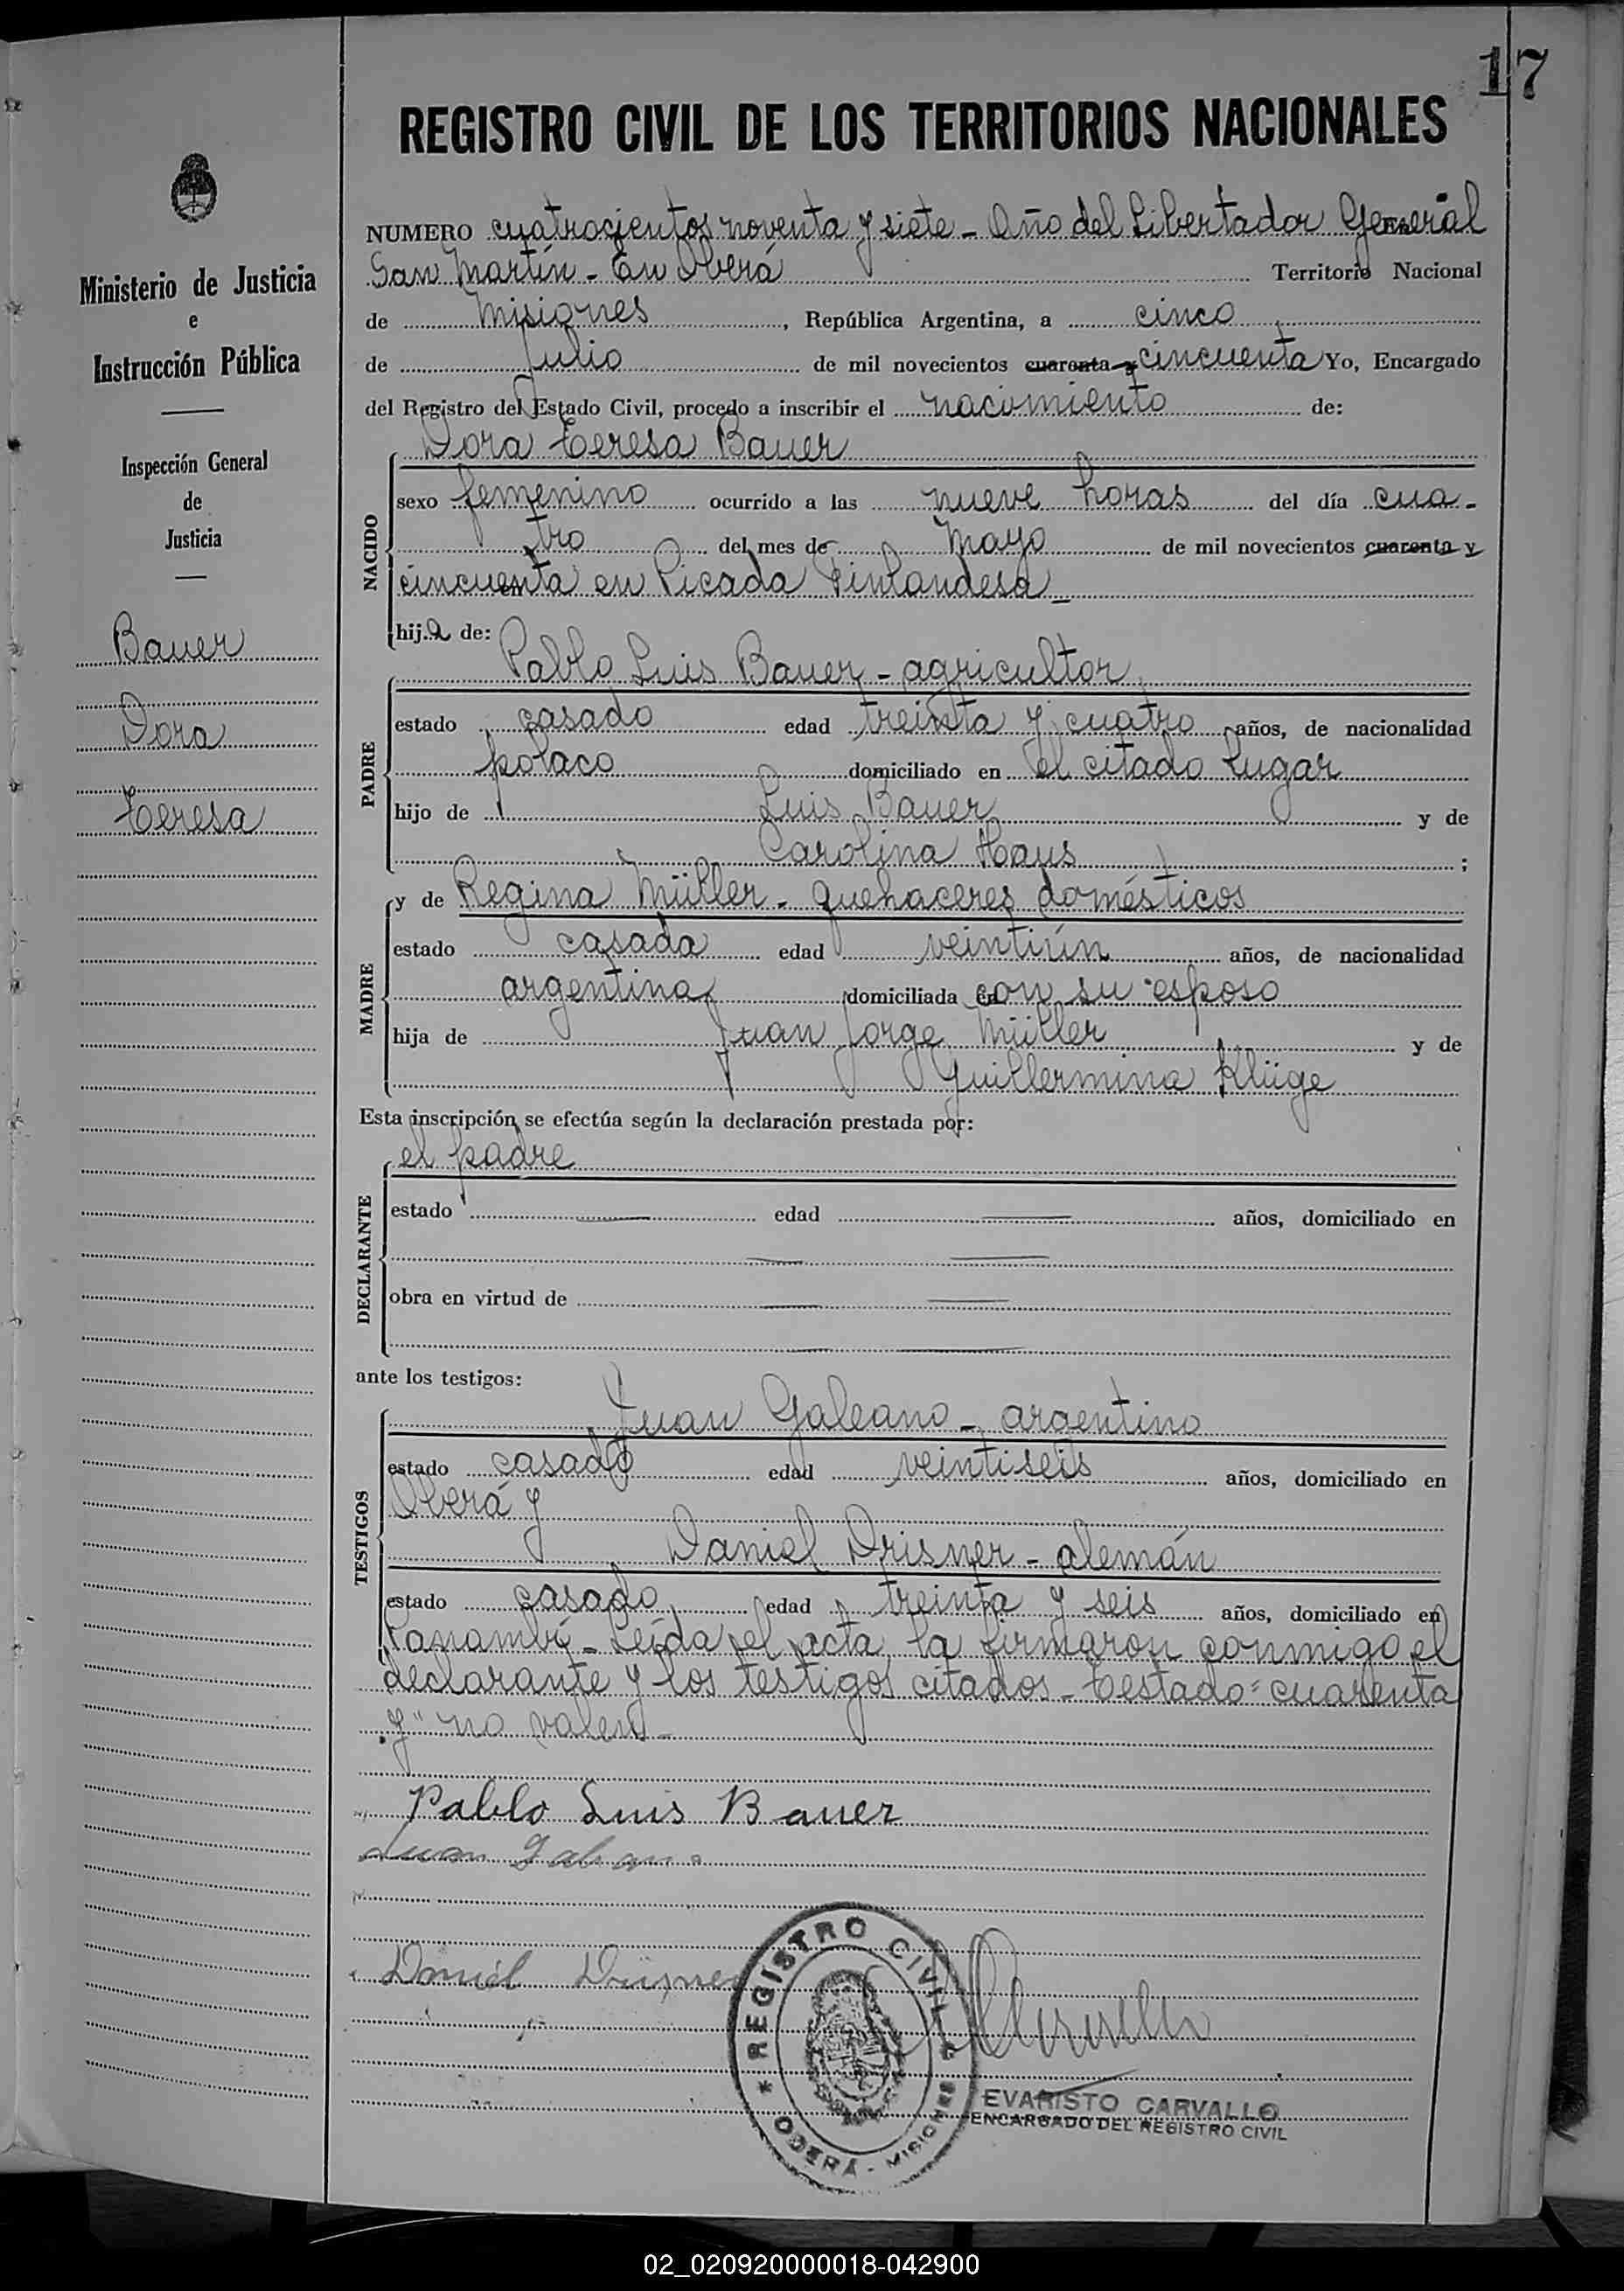 17
REGISTRO CIVIL DE LOS TERRITORIOS NACIONALES
Ministerio de Justicia
e
Instrucción Pública
Inspección General
de
Justicia
Bauer
Dora
Teresa
NUMERO cuatrocientos noventa y siete - Año del Libertador General
San Martín - En Oberá Territorio Nacional
de Misiones, República Argentina, a cinco
de Julio de mil novecientos cuarenta y cincuenta Yo, Encargado
del Registro del Estado Civil, procedo a inscribir el nacimiento de:
NACIDO
Dora Teresa Bauer
sexo femenino ocurrido a las nueve horas del día cua-
tro del mes de Mayo de mil novecientos cuarenta y
cincuenta en Picada Finlandesa -
hija de:
PADRE
Pablo Luis Bauer - agricultor
estado casado edad treinta y cuatro años, de nacionalidad
polaco domiciliado en el citado lugar
hijo de Luis Bauer y de
Carolina Haus ;
MADRE
y de Regina Müller - quehaceres domésticos
estado casada edad veintiún años, de nacionalidad
argentina domiciliada en con su esposo
hija de Juan Jorge Müller y de
Guillermina Klüge
Esta inscripción se efectúa según la declaración prestada por:
DECLARANTE
el padre
estado edad años, domiciliado en
obra en virtud de
ante los testigos:
TESTIGOS
Juan Galeano - argentino
estado casado edad veintiseis años, domiciliado en
Oberá y
Daniel Drisner - alemán
estado casado edad treinta y seis años, domiciliado en
Panambí - Leída el acta, la firmaron conmigo el
declarante y los testigos citados - Testado "cuarenta
y" no valen -
Pablo Luis Bauer
Juan Galeano
Daniel
REGISTRO CIVIL
OBERÁ - MISIONES
EVARISTO CARVALLO
ENCARGADO DEL REGISTRO CIVIL
02_020920000018-042900